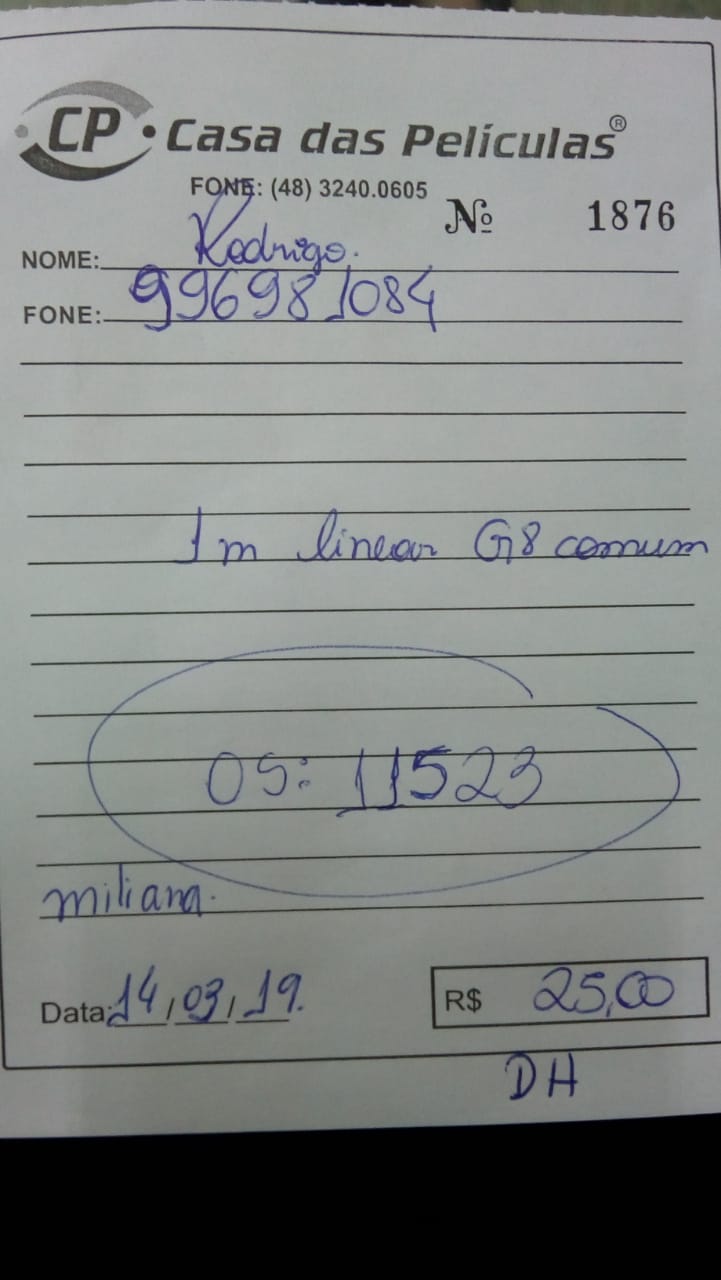 CP • Casa das Películas®
FONE: (48) 3240.0605
Nº 1876
NOME: Rodrigo.
FONE: 996981084
1m linear G8 comum
OS: 11523
miliana.
Data: 14/03/19.
R$ 25,00
DH